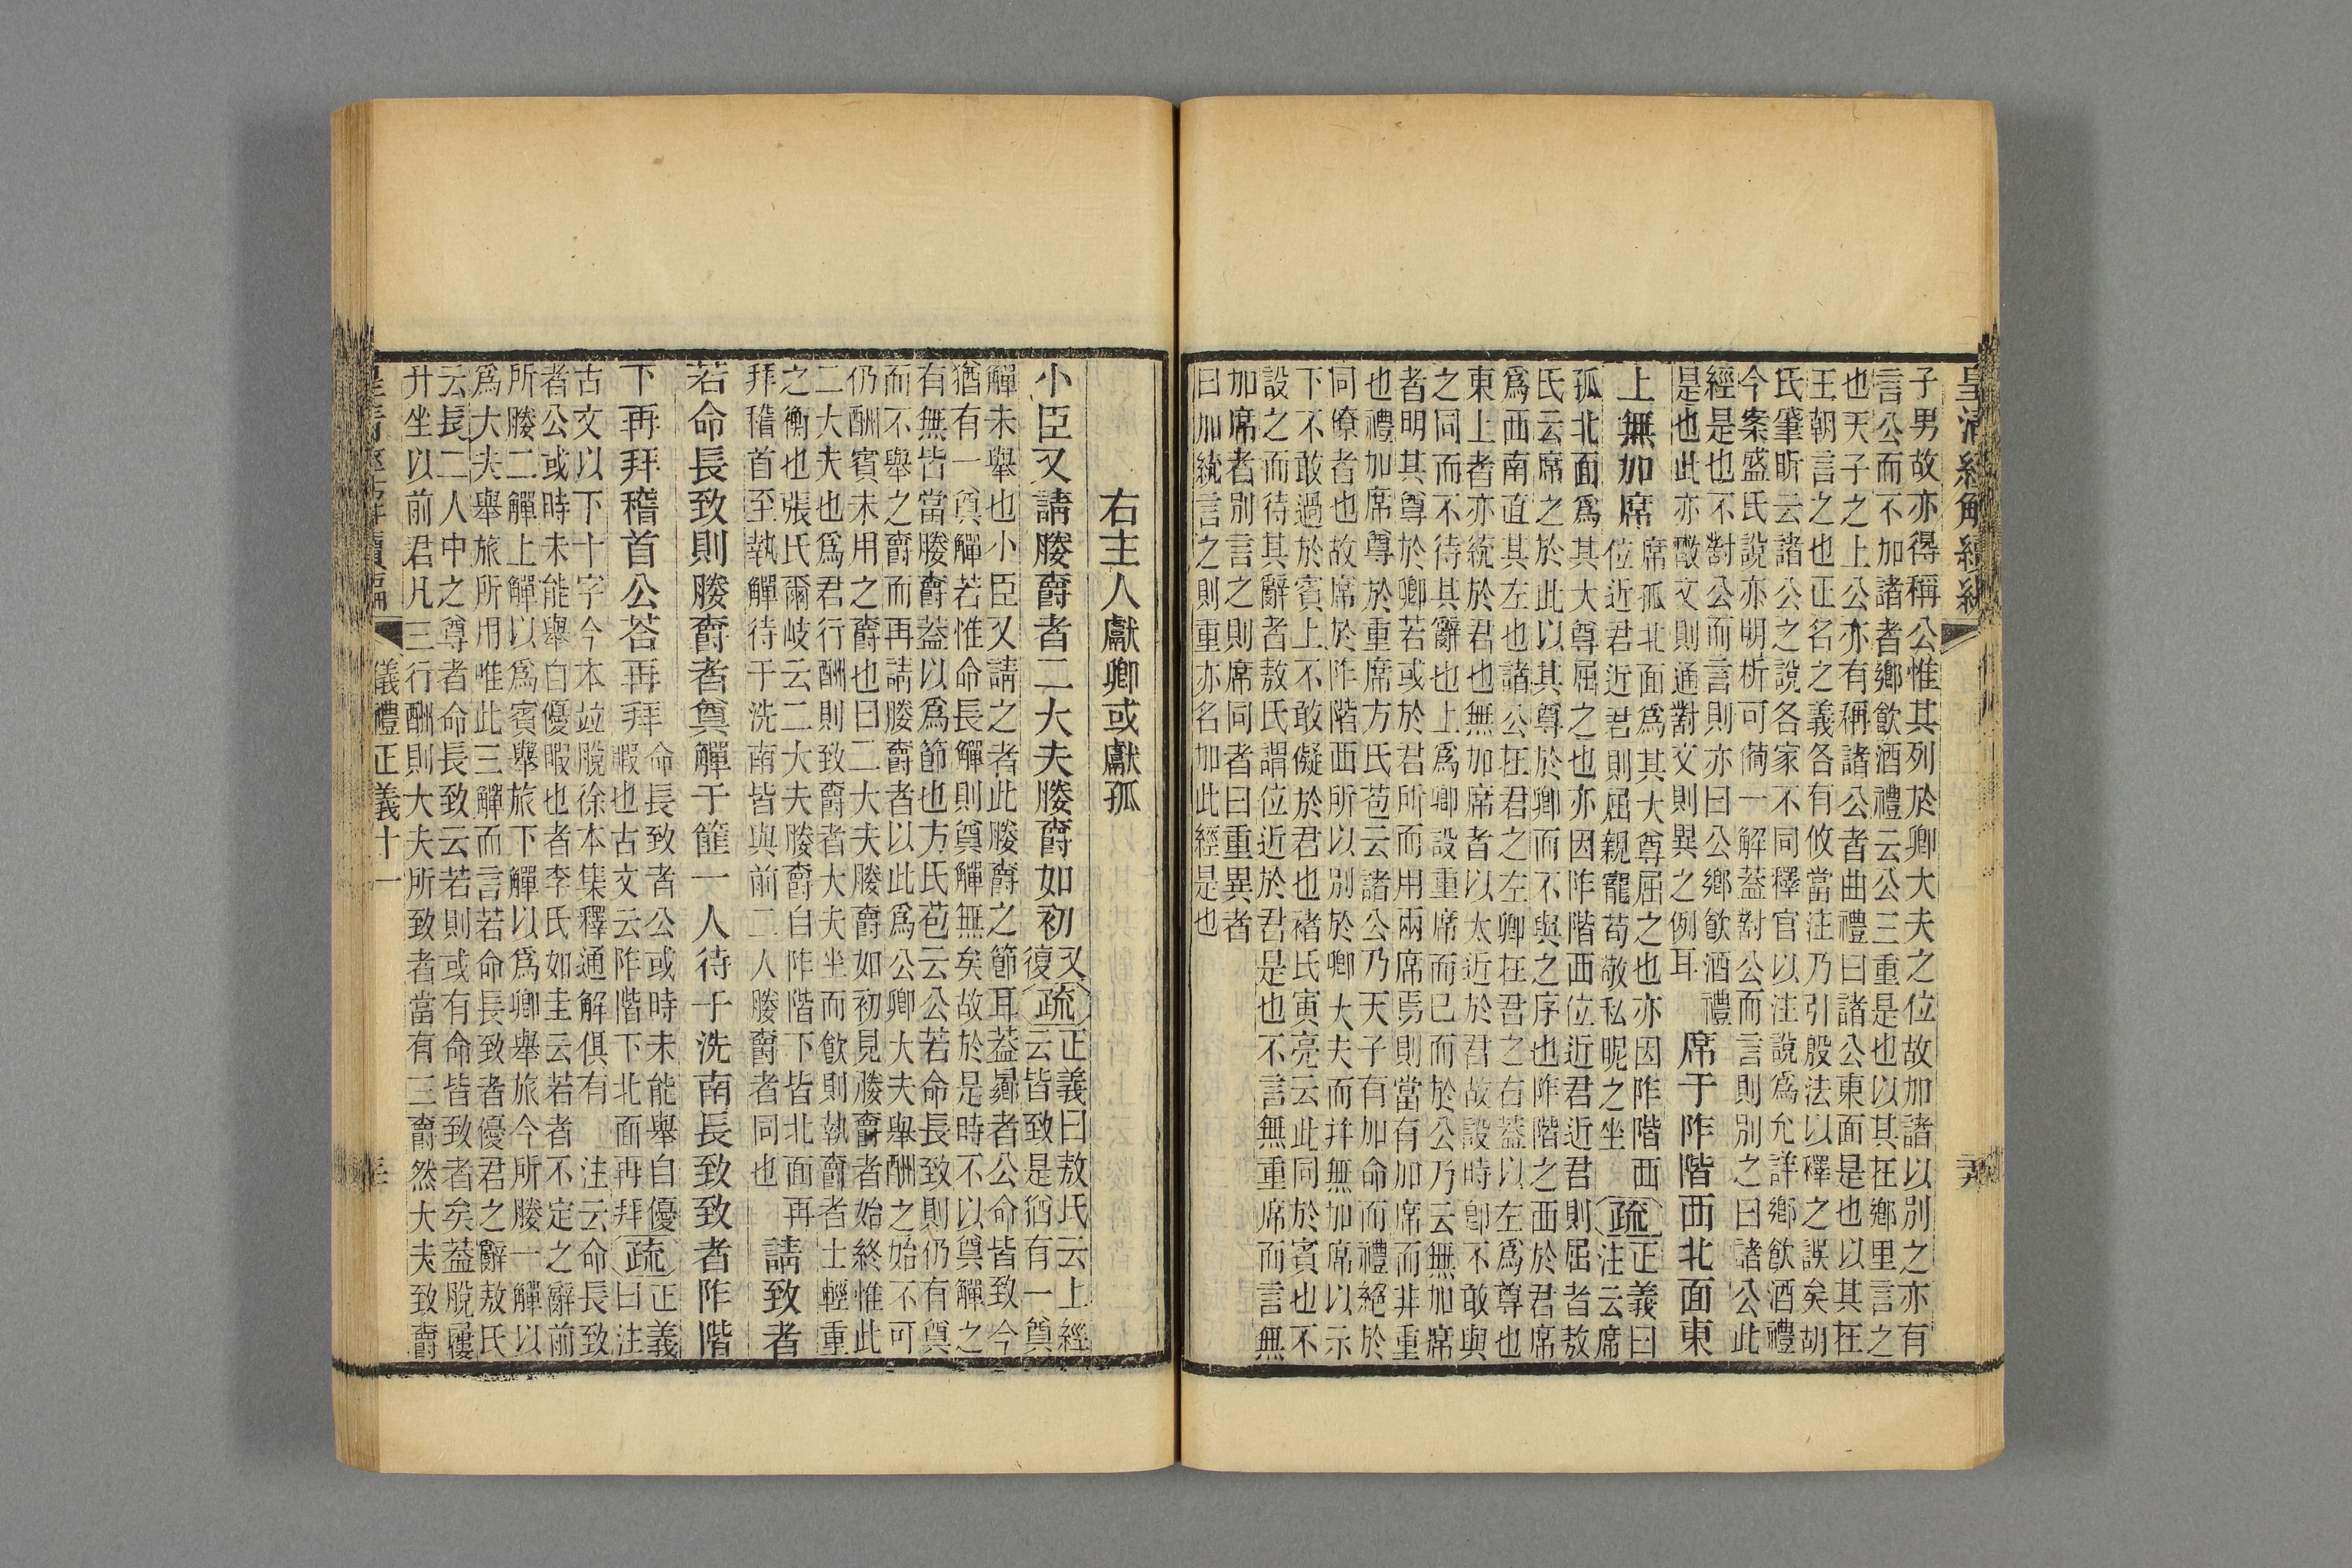 皇清經解續編
子男故亦得稱公惟其列於卿大夫之位故加諸以別之亦有
言公而不加諸者鄉飲酒禮云公三重是也以其在鄉里言之
也天子之上公亦有稱諸公者曲禮曰諸公東面是也以其在
王朝言之也正名之義各有攸當注乃引殷法以釋之誤矣胡
氏肇昕云諸公之說各家不同釋官以注說爲允詳鄉飲酒禮
今案盛氏說亦明析可備一解葢對公而言則別之曰諸公此
經是也不對公而言則亦曰公鄉飲酒禮
是也此亦散文則通對文則異之例耳
席于阼階西北面東
上無加席
席孤北面爲其大尊屈之也亦因阼階西
位近君近君則屈親寵苟敬私昵之坐
疏
正義曰
注云席
孤北面爲其大尊屈之也亦因阼階西位近君近君則屈者敖
氏云席之於此以其尊於卿而不與之序也阼階之西於君席
爲西南直其左也諸公在君之左卿在君之右葢以左爲尊也
東上者亦統於君也無加席者以太近於君故設時卽不敢與
之同而不待其辭也上爲卿設重席而已而於公乃云無加席
者明其尊於卿若或於君所而用兩席焉則當有加席而非重
也禮加席尊於重席方氏苞云諸公乃天子有加命而禮絕於
同僚者也故席於阼階西所以別於卿大夫而幷無加席以示
下不敢過於賓上不敢儗於君也褚氏寅亮云此同於賓也不
設之而待其辭者敖氏謂位近於君是也不言無重席而言無
加席者別言之則席同者曰重異者
曰加統言之則重亦名加此經是也
右主人獻卿或獻孤
小臣又請媵爵者二大夫媵爵如初
又
復
疏
正義曰敖氏云上經
云皆致是猶有一奠
觶未舉也小臣又請之者此媵爵之節耳葢曏者公命皆致今
猶有一奠觶若惟命長觶則奠觶無矣故於是時不以奠觶之
有無皆當媵爵葢以爲節也方氏苞云公若命長致則仍有奠
而不舉之爵而再請媵爵者以此爲公卿大夫舉酬之始不可
仍酬賓未用之爵也曰二大夫媵爵如初見媵爵者始終惟此
二大夫也爲君行酬則致爵者大夫坐而飮則執爵者士輕重
之衡也張氏爾岐云二大夫媵爵自阼階下皆北面再
拜稽首至執觶待于洗南皆與前二人媵爵者同也
請致者
若命長致則媵爵者奠觶于篚一人待于洗南長致致者阼階
下再拜稽首公荅再拜
命長致者公或時未能舉自優
暇也古文云阼階下北面再拜
疏
正義
曰注
古文以下十字今本竝脫徐本集釋通解俱有 注云命長致
者公或時未能舉自優暇也者李氏如圭云若者不定之辭前
所媵二觶上觶以爲賓舉旅下觶以爲卿舉旅今所媵一觶以
爲大夫舉旅所用唯此三觶而言若命長致者優君之辭敖氏
云長二人中之尊者命長致云若則或有命皆致者矣葢脫屨
升坐以前君凡三行酬則大夫所致者當有三爵然大夫致爵
儀禮正義十一